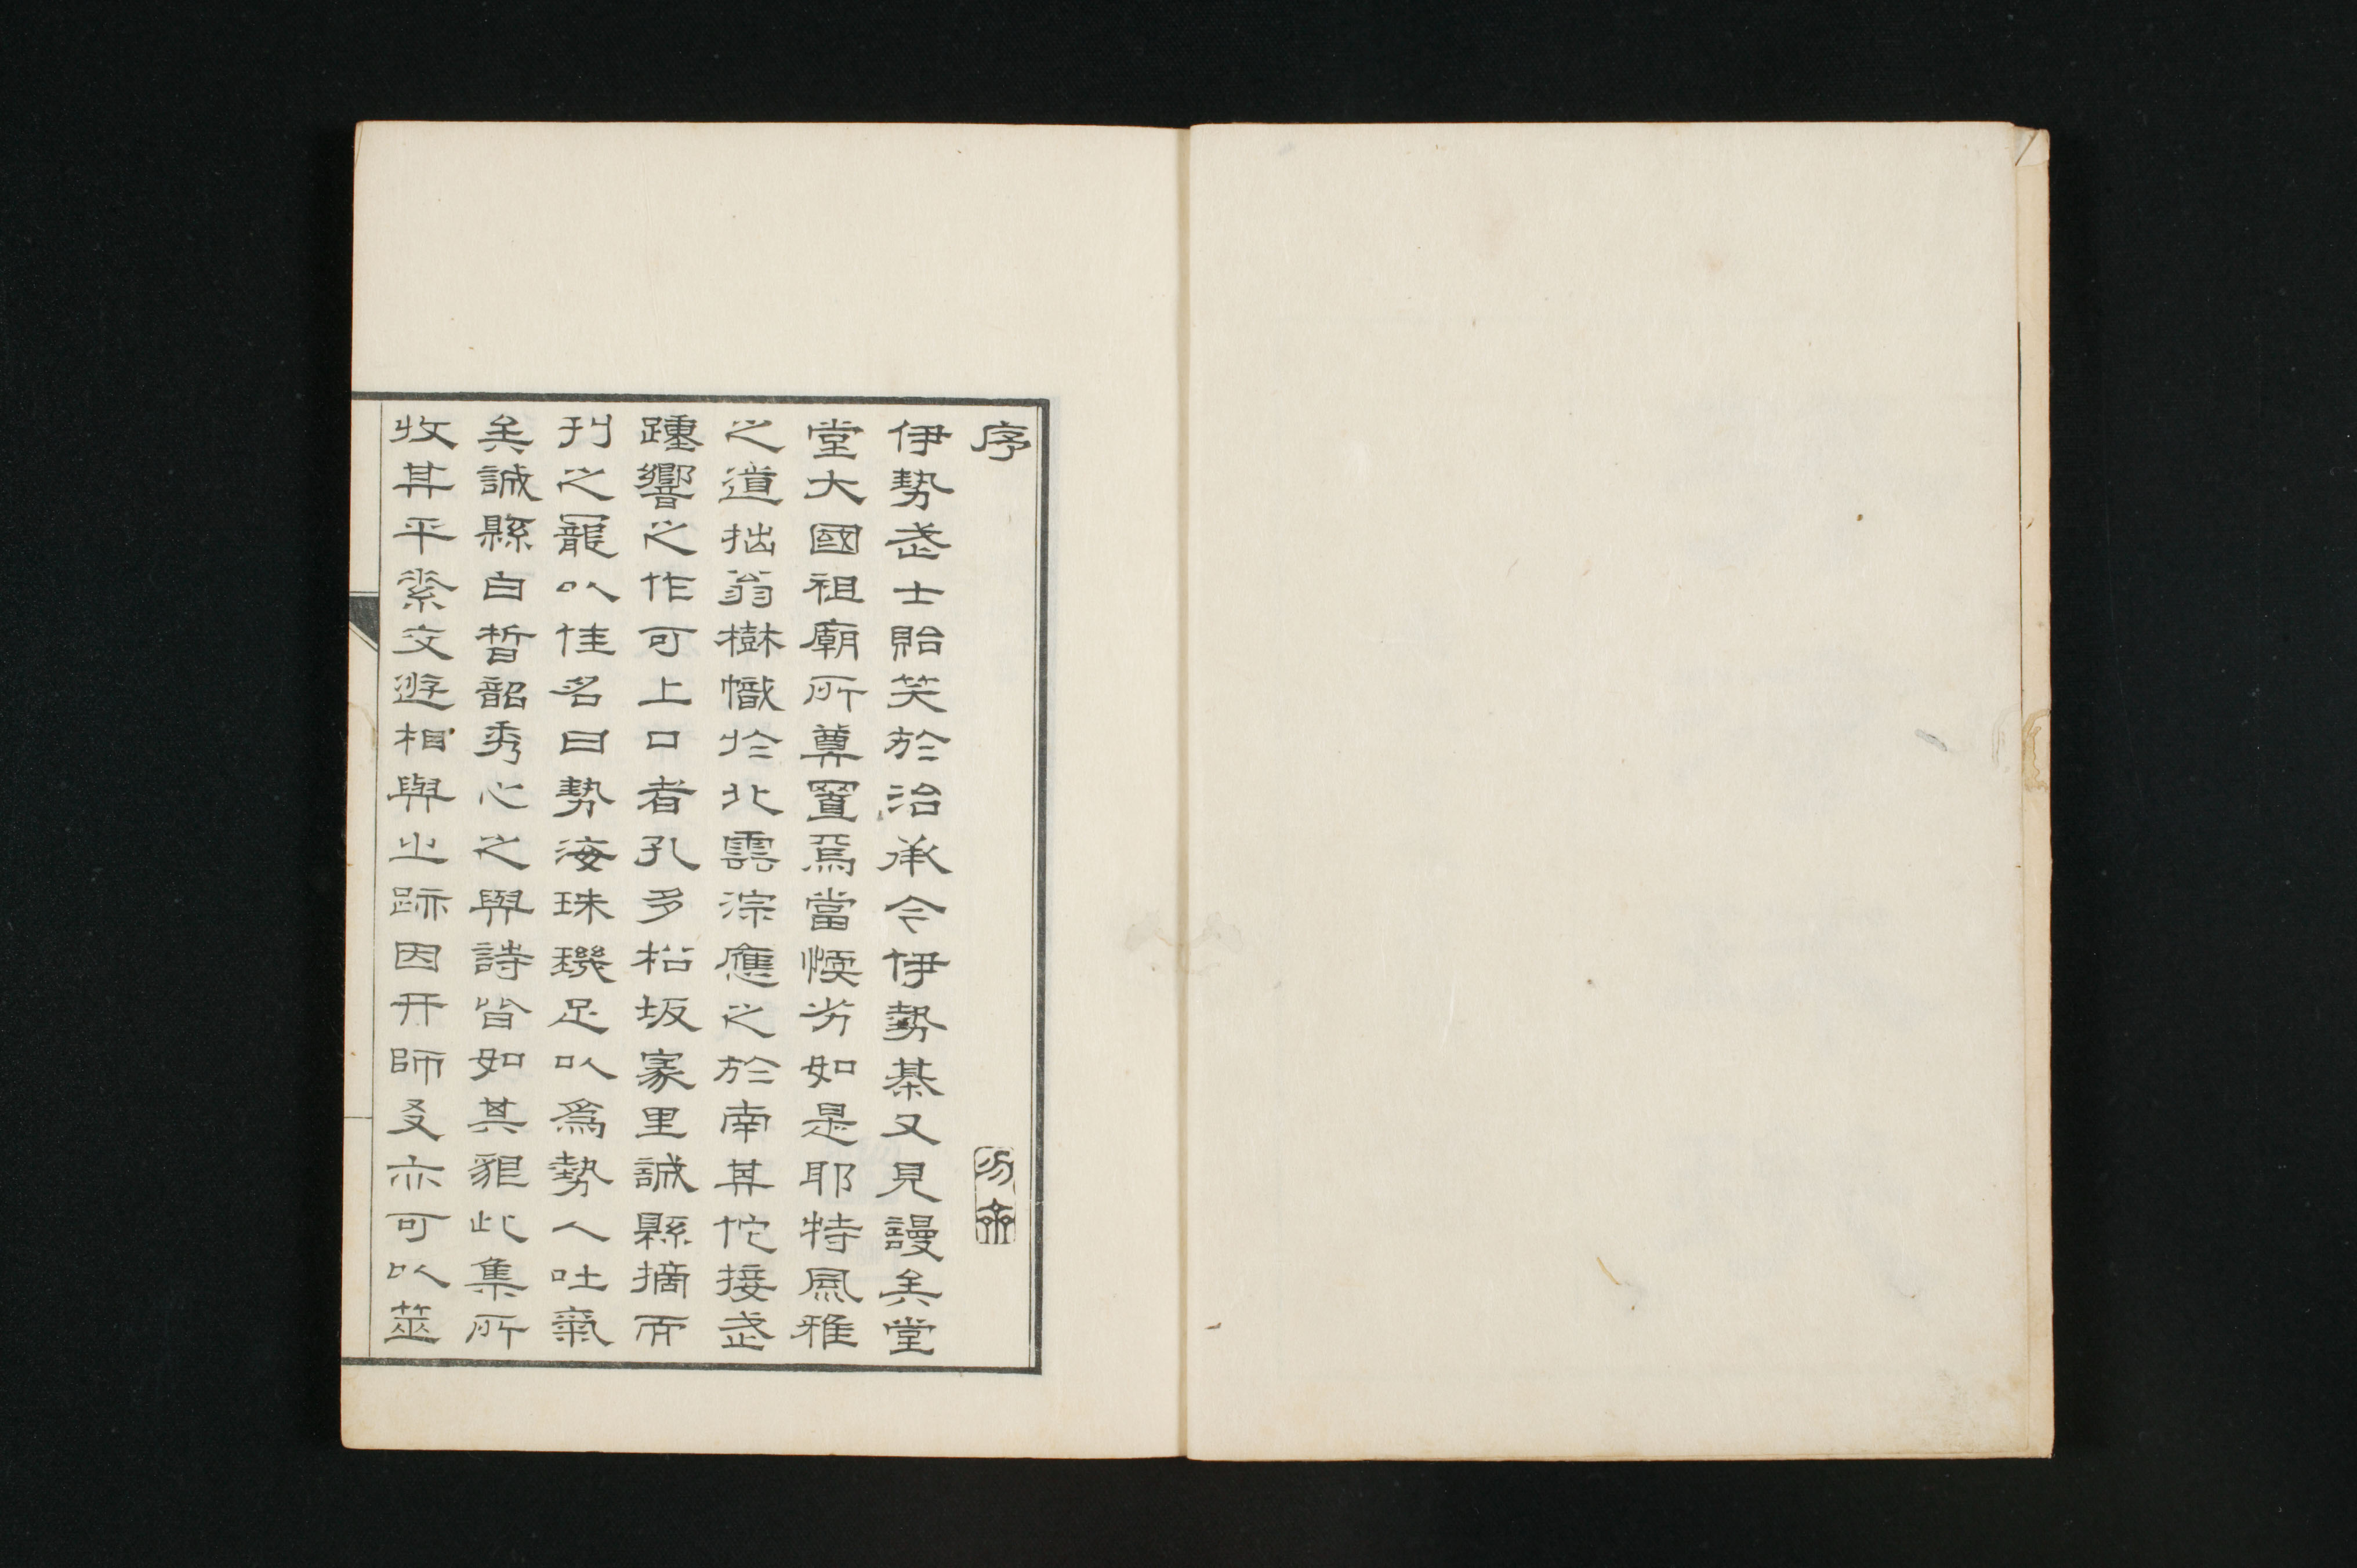 序
伊勢武士貽笑於治承今伊勢棊又見謾矣堂
堂大國祖廟所尊置焉當愞劣如是耶特風雅
之道拙翁樹幟於北雲淙應之於南其佗接武
踵響之作可上口者孔多松坂家里誠縣摘而
刊之寵以佳名曰勢海珠璣足以爲勢人吐氣
矣誠縣白晳韶秀心之與詩皆如其貌此集所
收其平素交遊相與之跡因幵師友亦可以筮